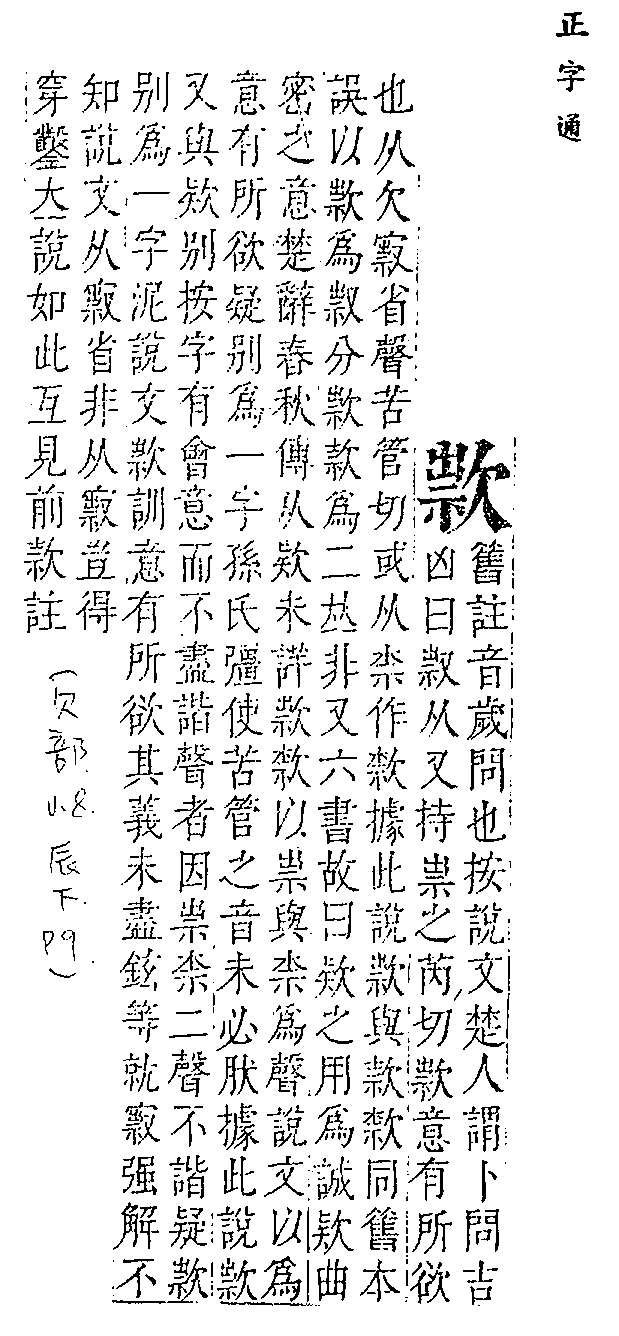 正字通
款
舊註音歲問也按說文楚人謂卜問吉
凶曰𠭥从又持祟之芮切款意有所欲
也从欠𡫳省聲苦管切或从柰作歀據此說款與款歀同舊本
誤以款爲𠭥分款款爲二𠀤非又六書故曰欵之用爲誠欵曲
密之意楚辭春秋傳从欵未詳款歀以祟與柰爲聲說文以爲
意有所欲疑别爲一字孫氏彊使苦管之音未必肰據此說款
又與欵别按字有會意而不盡諧聲者因祟柰二聲不諧疑款
别爲一字泥說文款訓意有所欲其義未盡鉉等就𡫳强解不
知說文从𡫳省非从𡫳豈得
穿鑿大說如此互見前款註
(欠部 v.8. 辰下 p9.)